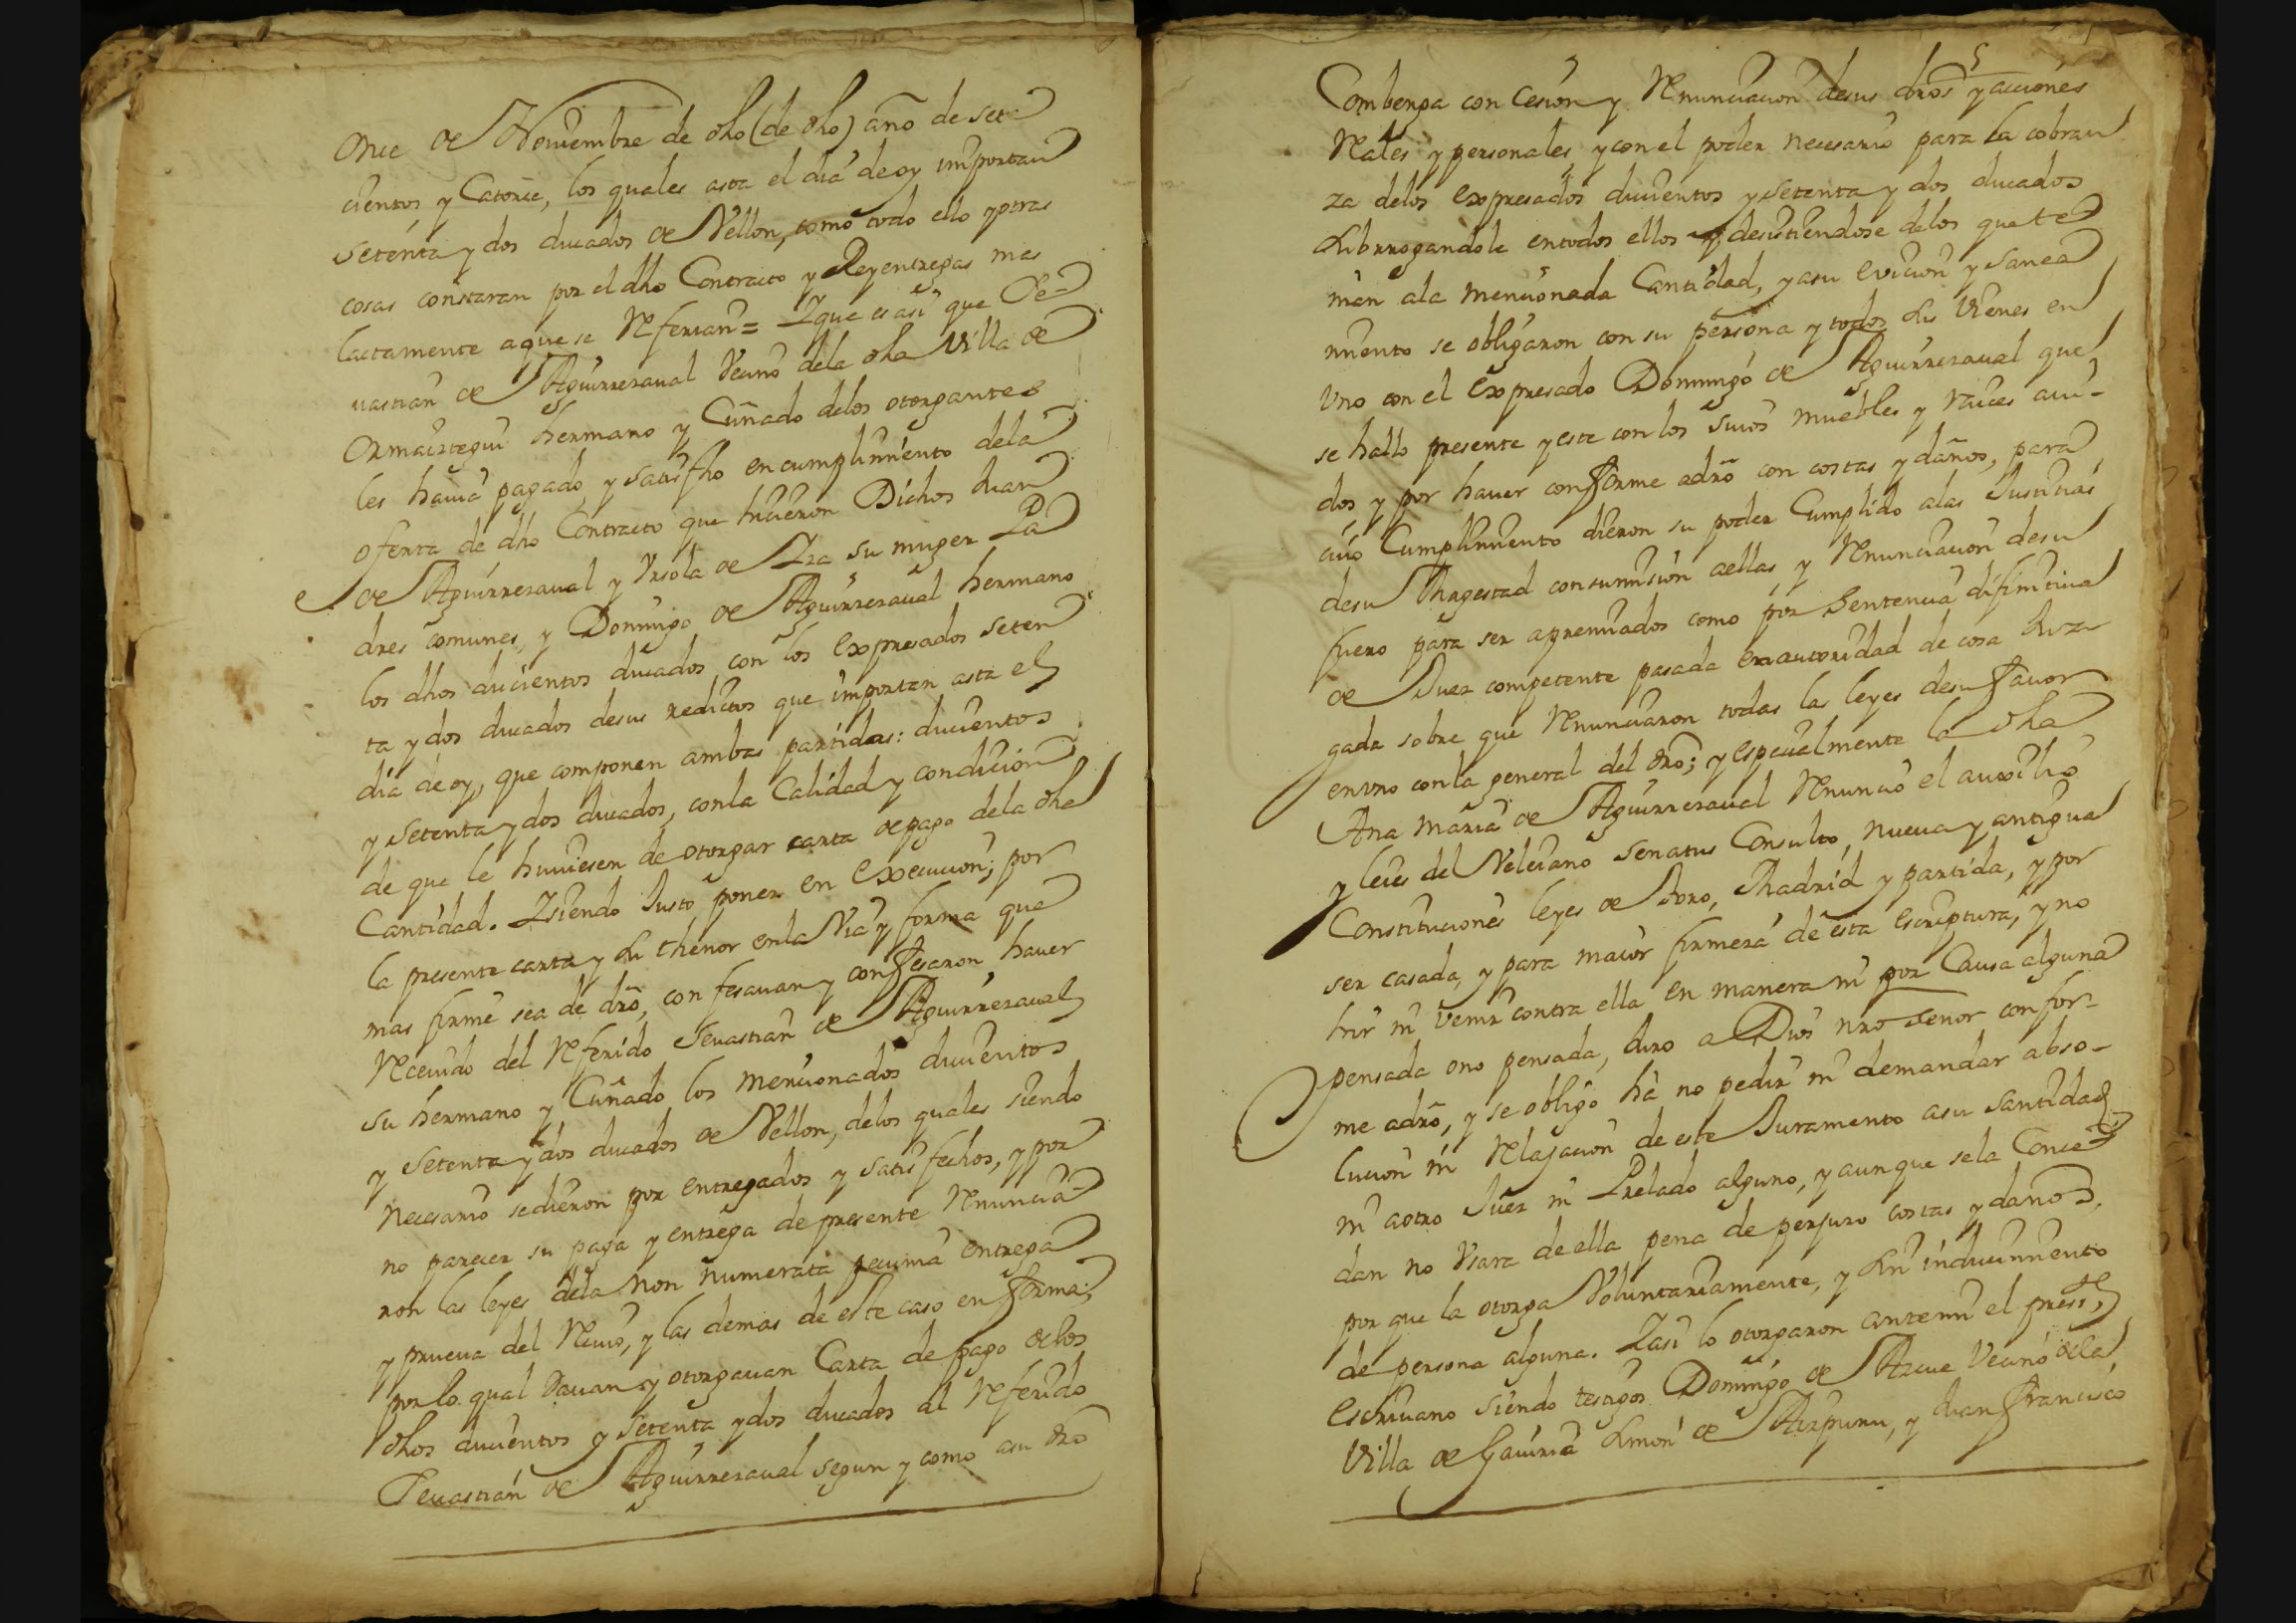 Once de Noviembre de dho (de dho) año de sete
cientos y Catorce, los quales asta el dia de oy importan
setenta y dos ducados de Vellon, como todo ello y otras
cosas constaran por el dho Contracto y Reyentregas mas
lactamente a que se Referian = Y que es asi que Se-
uastian de Aguirrezaual Vecino dela dha Villa de
Ormaiztegui hermano y Cuñado delos otorgantes
les hauia pagado, y satisfho en cumplimiento dela
oferta de dho Contracto que hicieron Dichos Juan
de Aguirrezaual y Vrsola de Yza su muger Pa
dres comunes, y Domingo de Aguirrezaual hermano
los dhos ducientos ducados, con los expresados seten
ta y dos ducados desus redictos que importan asta el
dia de oy, que componen ambas partidas: ducientos
y setenta y dos ducados, con la Calidad y condicion
de que le huuiesen de otorgar carta de pago dela dha
Cantidad. Y siendo Justo poner en execucion; por
la presente carta y su thenor en la Via y forma que
mas firme sea de drõ, confesauan y confesaron hauer
Receuido del Referido Seuastian de Aguirrezaual
su hermano y Cuñado los mencionados ducientos
y setenta y dos ducados de Vellon, delos quales siendo
necesario se dieron por entregados y satisfechos, y por
no parecer su paga y entrega de presente Renuncia-
ron las leyes dela non numerata pecunia entrega
y prueua del Reciuo, y las demas de este caso en forma;
por lo qual Dauan y otorgauan Carta de pago delos
dhos ducientos y setenta y dos ducados al Referido
Seuastian de Aguirrezaual segun y como a su drõ
5
Combenga con Cesion y Renunciacion desus dros y acciones
Reales y personales, y con el poder necesario para la cobran
za delos expresados ducientos y setenta y dos ducados
subrrogandole en todos ellos y desistiendose delos que te
nian ala mencionada Cantidad, y asu evicion y sanea
miento se obligaron con su persona y todos sus Vienes en
Vno con el expresado Domingo de Aguirrezaual que
se hallo presente y este con los suios muebles y raices aui-
dos y por hauer conforme adrõ con costas y daños, para
cuio Cumplimiento dieron su poder Cumplido alas Justicias
desu Magestad con sumision aellas, y Renunciacion desu
fuero para ser apremiados como por Sentencia difinitiua
de Juez competente pasada en autoridad de cosa Juz
gada sobre que Renunciaron todas las leyes desu fauor
en vno con la general del drõ; y especialmente la dha
Ana Maria de Aguirrezaual Renuncio el auxilio
y leies del Veleiano Senatus Consulto, nueua y antigua
Constituciones leyes de Toro, Madrid y partida, y por
ser casada, y para maior firmeza de esta escriptura, y no
hir ni venir contra ella en manera ni por Causa alguna
pensada o no pensada, Juro a Dios nro señor confor-
me adrõ, y se obligo hà no pedir ni demandar abso-
lucion ni Relajacion de este Juramento a su santidad
ni aotro Juez ni Prelado alguno, y aunque se la Conce-
dan no Vsara de ella pena de perjuro costas y daños,
por que la otorga Voluntariamente, y sin inducimiento
de persona alguna. Y asi lo otorgaron ante mi el press.te
escriuano siendo testigos Domingo de Azcue Vecino dela
Villa de Gauiria Simon de Aizpuru, y Juan Francisco